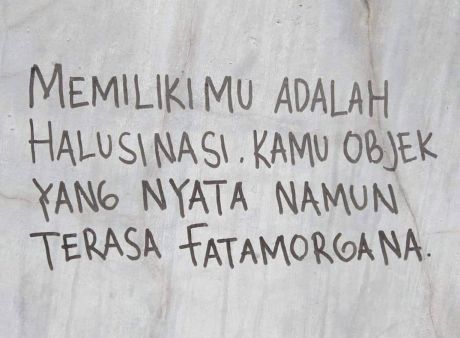 MEMILIKIMU ADALAH
HALUSINASI. KAMU OBJEK
YANG NYATA NAMUN
TERASA FATAMORGANA.